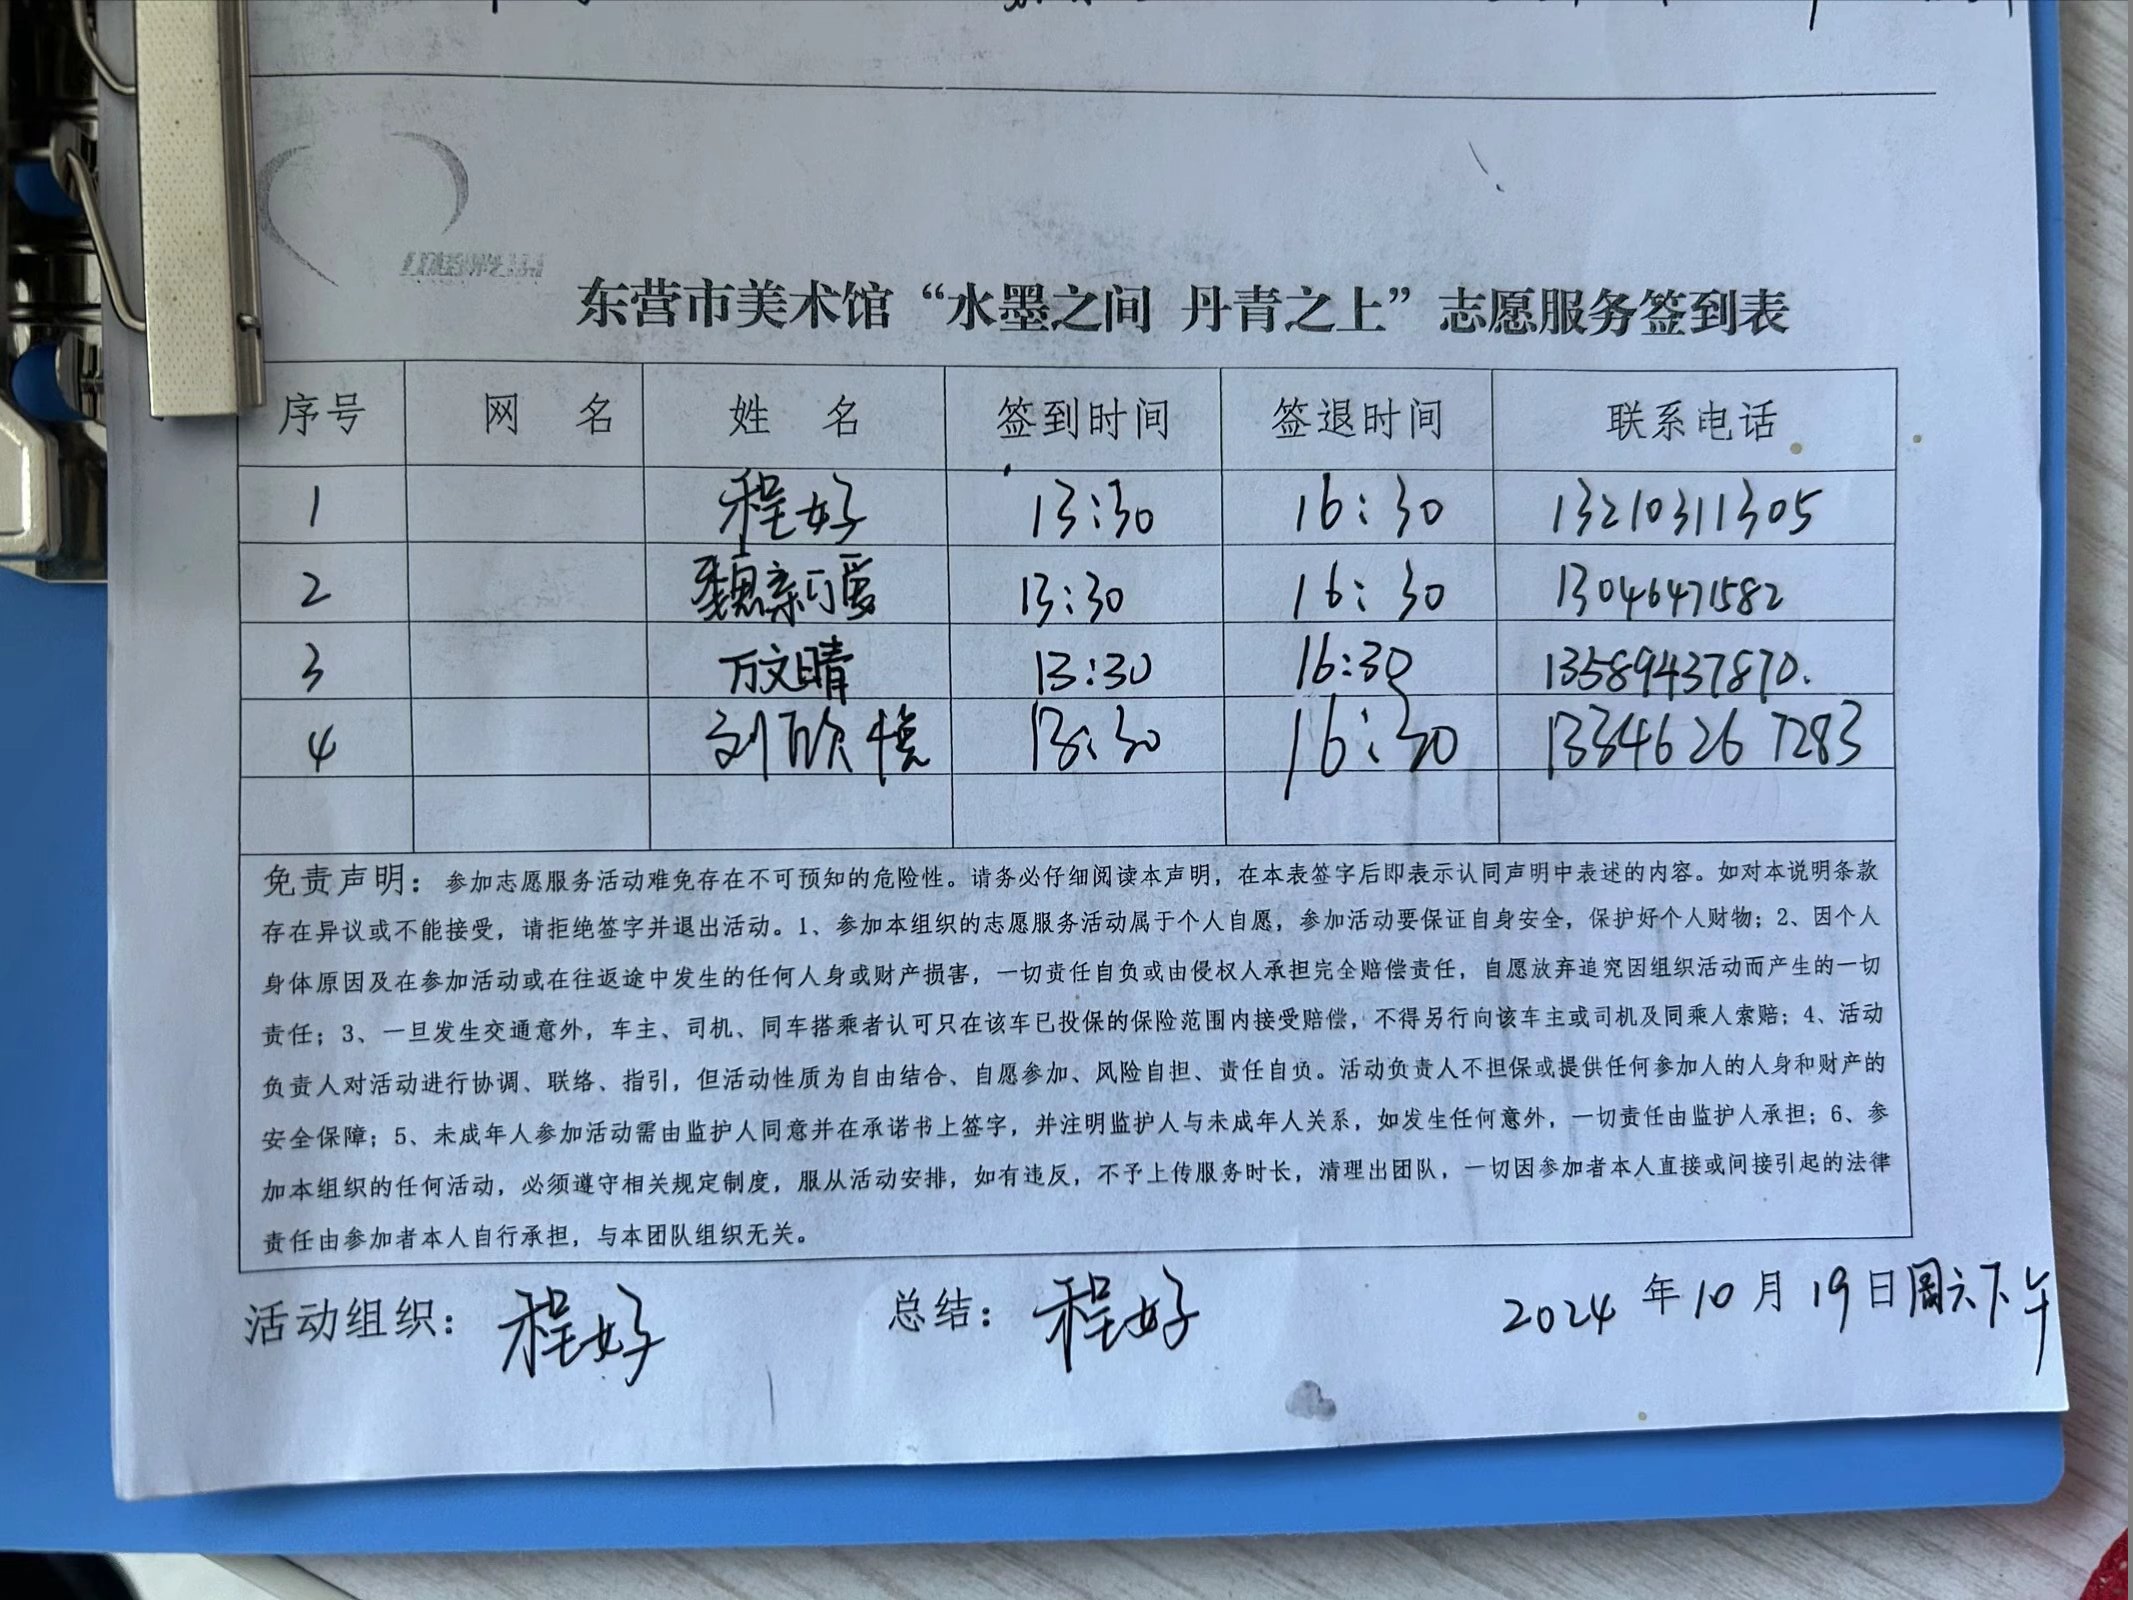 东营市美术馆“水墨之间 丹青之上”志愿服务签到表
序号 网 名 姓 名 签到时间 签退时间 联系电话
1 程好 13:30 16:30 13210311305
2 魏新可爱 13:30 16:30 13046471582
3 万文晴 13:30 16:30 13589437870.
4 刘欣悦 13:30 16:30 13346267283
免责声明：参加志愿服务活动难免存在不可预知的危险性。请务必仔细阅读本声明，在本表签字后即表示认同声明中表述的内容。如对本说明条款
存在异议或不能接受，请拒绝签字并退出活动。1、参加本组织的志愿服务活动属于个人自愿，参加活动要保证自身安全，保护好个人财物；2、因个人
身体原因及在参加活动或在往返途中发生的任何人身或财产损害，一切责任自负或由侵权人承担完全赔偿责任，自愿放弃追究因组织活动而产生的一切
责任；3、一旦发生交通意外，车主、司机、同车搭乘者认可只在该车已投保的保险范围内接受赔偿，不得另行向该车主或司机及同乘人索赔；4、活动
负责人对活动进行协调、联络、指引，但活动性质为自由结合、自愿参加、风险自担、责任自负。活动负责人不担保或提供任何参加人的人身和财产的
安全保障；5、未成年人参加活动需由监护人同意并在承诺书上签字，并注明监护人与未成年人关系，如发生任何意外，一切责任由监护人承担；6、参
加本组织的任何活动，必须遵守相关规定制度，服从活动安排，如有违反，不予上传服务时长，清理出团队，一切因参加者本人直接或间接引起的法律
责任由参加者本人自行承担，与本团队组织无关。
活动组织：程好 总结：程好 2024年10月19日周六下午